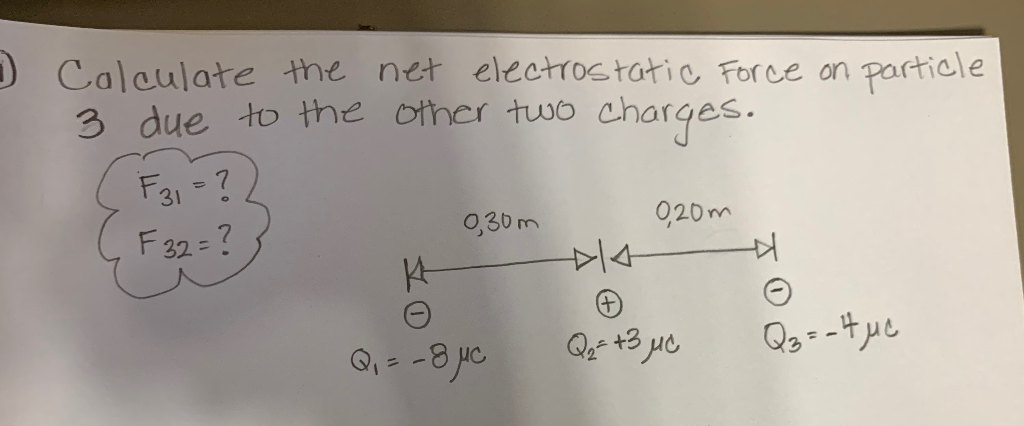 1) Calculate the net electrostatic Force on particle
3 due to the other two charges.
F31 = ?
F32 = ?
0,30m
0,20m
⊖
⊕
⊖
Q1 = -8 μC
Q2 = +3 μC
Q3 = -4 μC